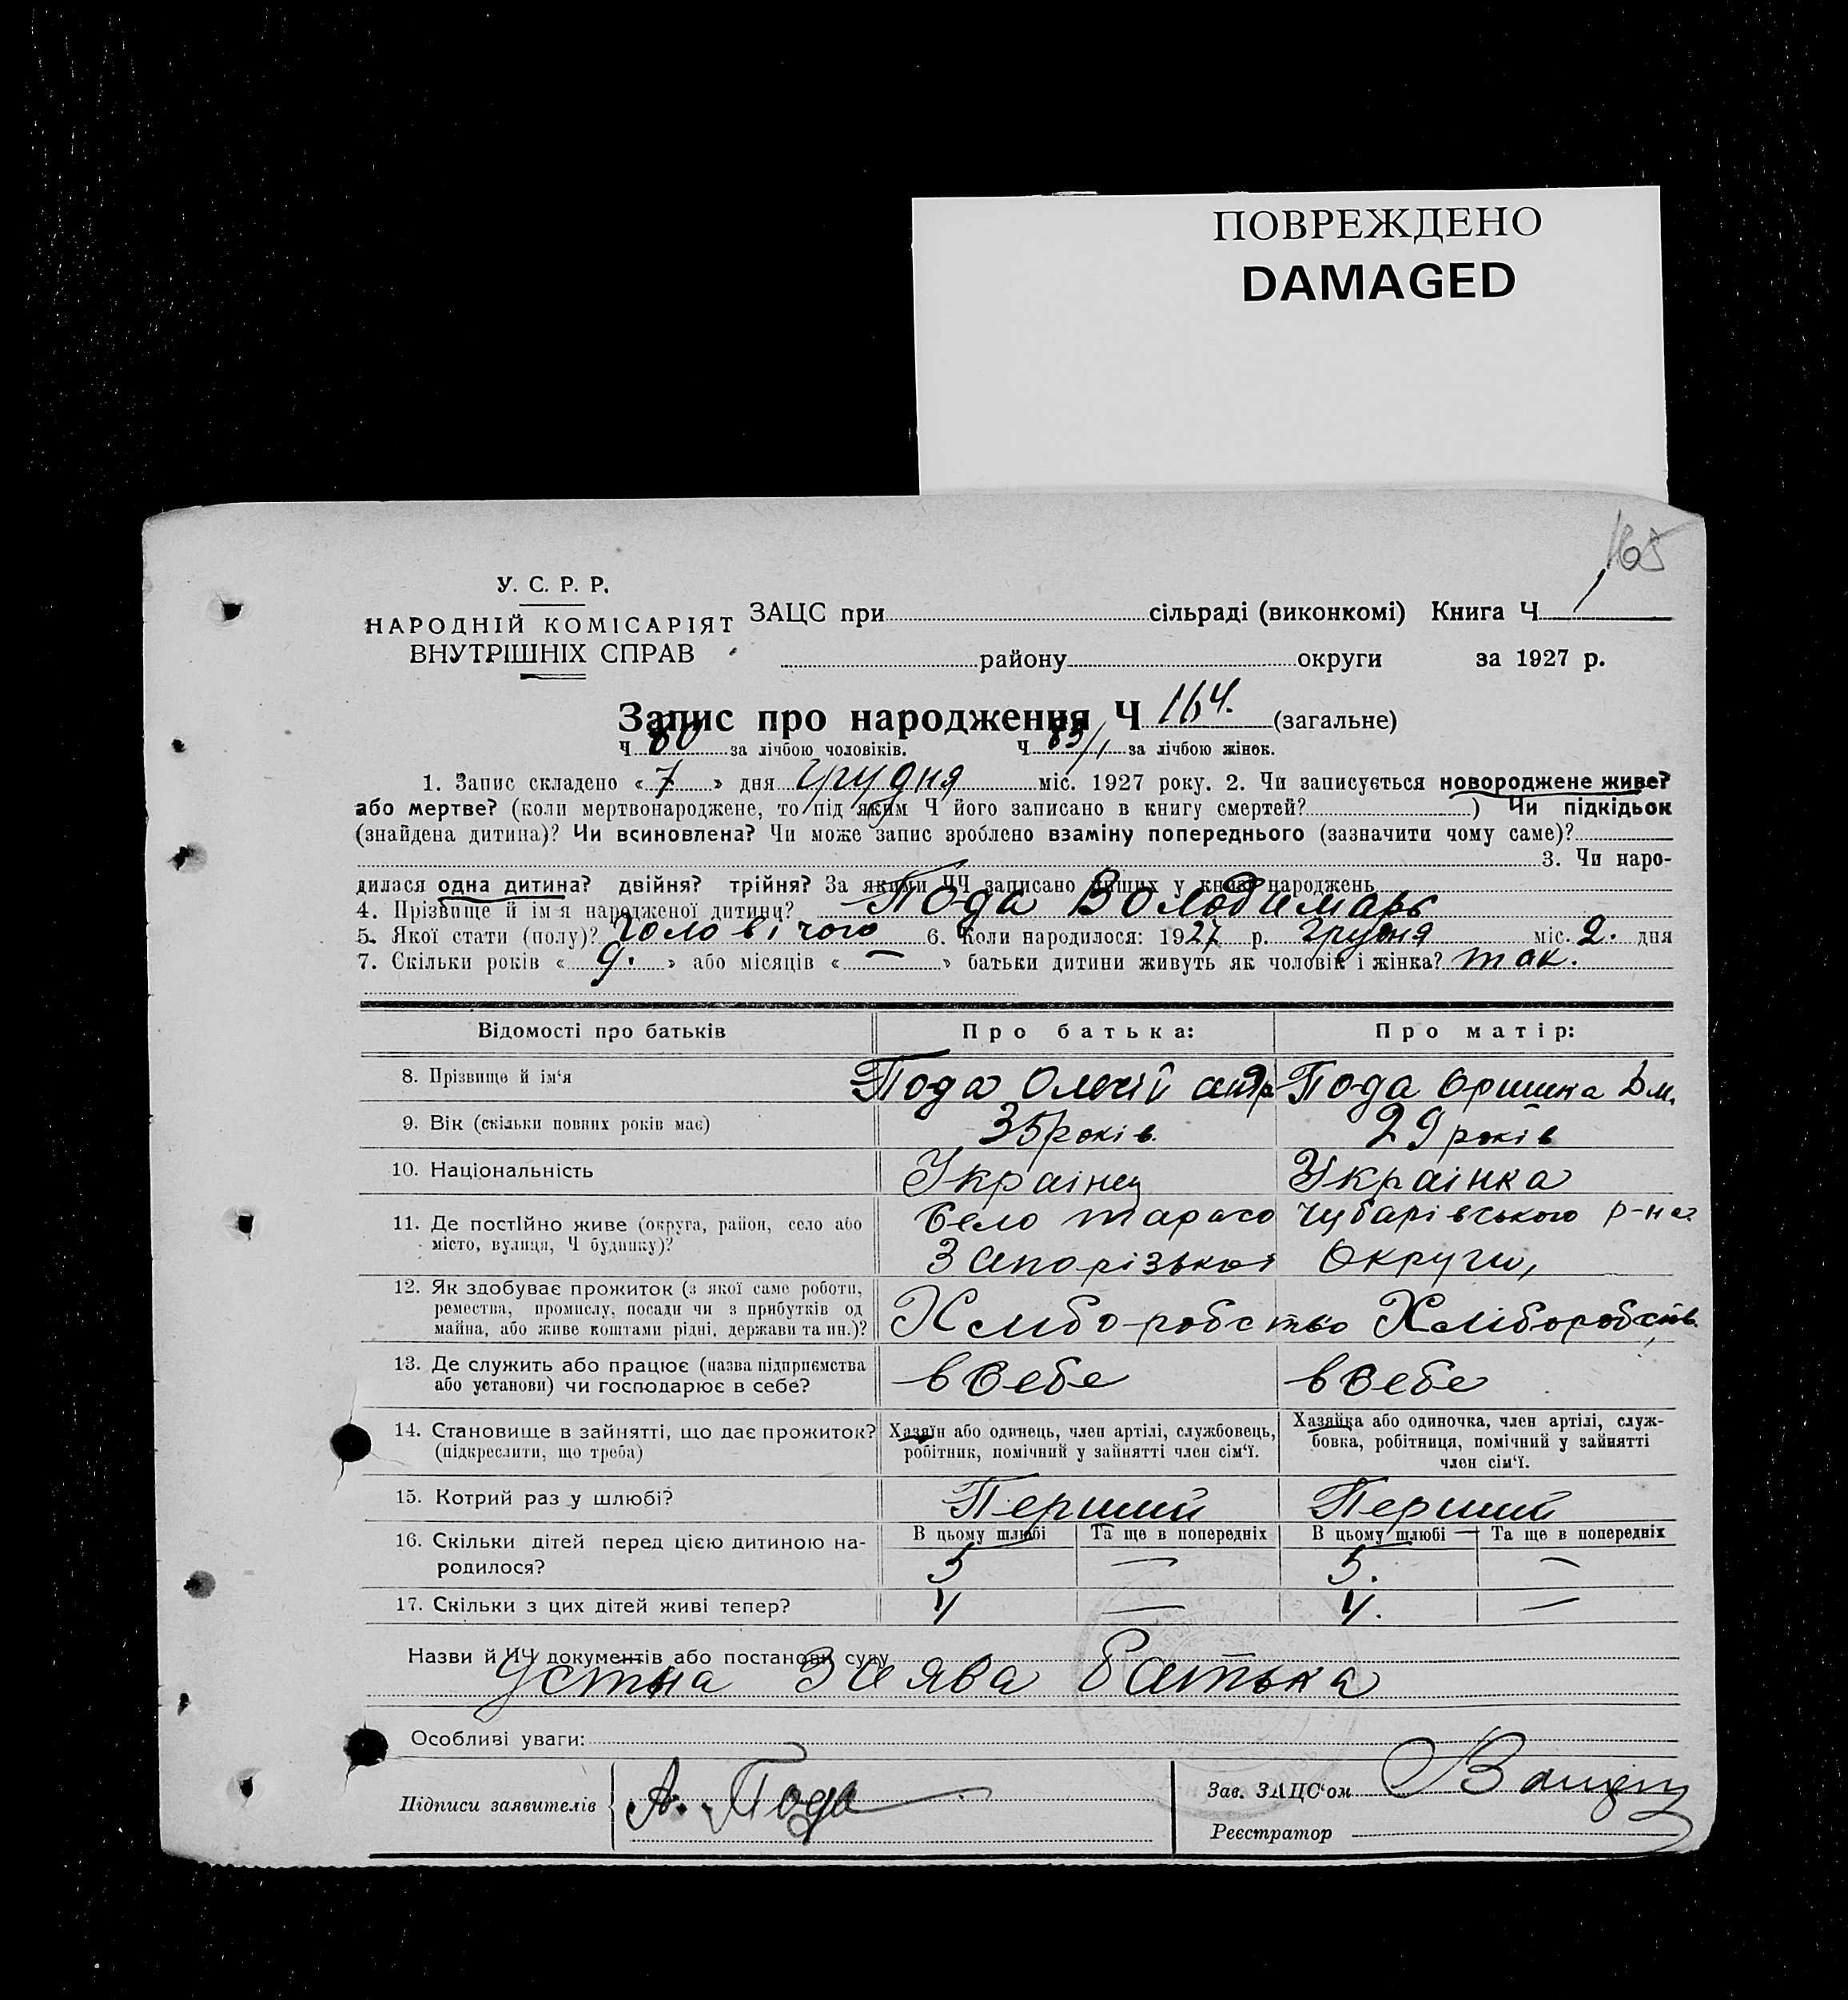 ПОВРЕЖДЕНО
DAMAGED
165
У. С. Р. Р.
НАРОДНІЙ КОМІСАРІЯТ
ВНУТРІШНІХ СПРАВ
ЗАЦС при сільраді (виконкомі) Книга Ч 1
району округи за 1927 р.
Запис про народження Ч 164. (загальне)
Ч 80 за лічбою чоловіків. Ч за лічбою жінок.
1. Запис складено « 7 » дня грудня міс. 1927 року. 2. Чи записується новороджене живе?
або мертве? (коли мертвонароджене, то під яким Ч його записано в книгу смертей? ) Чи підкідьок
(знайдена дитина)? Чи всиновлена? Чи може запис зроблено взаміну попереднього (зазначити чому саме)?
3. Чи наро-
дилася одна дитина? двійня? трійня? За якими ЧЧ записано інших у книзі народжень
4. Прізвище й ім'я народженої дитини? Пода Володимарь
5. Якої стати (полу)? Чоловічого 6. Коли народилося: 1927 р. грудня міс. 2. дня
7. Скільки років « 9. » або місяців « — » батьки дитини живуть як чоловік і жінка? так.
Відомості про батьків Про батька: Про матір:
8. Прізвище й ім'я Пода Олексій Пода Оришка Дм.
9. Вік (скільки повних років має) 35 років. 29 років
10. Національність Українец Українка
11. Де постійно живе (округа, район, село або
місто, вулиця, Ч будинку)?
Село Тарасо Чубарівського р-на
Запорізької Округи,
12. Як здобуває прожиток (з якої саме роботи,
ремества, промислу, посади чи з прибутків од
майна, або живе коштами рідні, держави та ин.)?
Хлібо-робство Хліборобств.
13. Де служить або працює (назва підприємства
або установи) чи господарює в себе?
в Себе в Себе
14. Становище в зайнятті, що дає прожиток?
(підкреслити, що треба)
Хазяїн або одинець, член артілі, службовець,
робітник, помічний у зайнятті член сім'ї.
Хазяйка або одиночка, член артілі, служ-
бовка, робітниця, помічний у зайнятті
член сім'ї.
15. Котрий раз у шлюбі? Перший Перший
16. Скільки дітей перед цією дитиною на-
родилося?
В цьому шлюбі Та ще в попередніх В цьому шлюбі Та ще в попередніх
5 — 5. —
17. Скільки з цих дітей живі тепер? 4 — 4. —
Назви й ЧЧ документів або постанови суду
Устна Заява Батька
Особливі уваги:
Підписи заявителів А. Пода
Зав. ЗАЦС'ом
Реєстратор